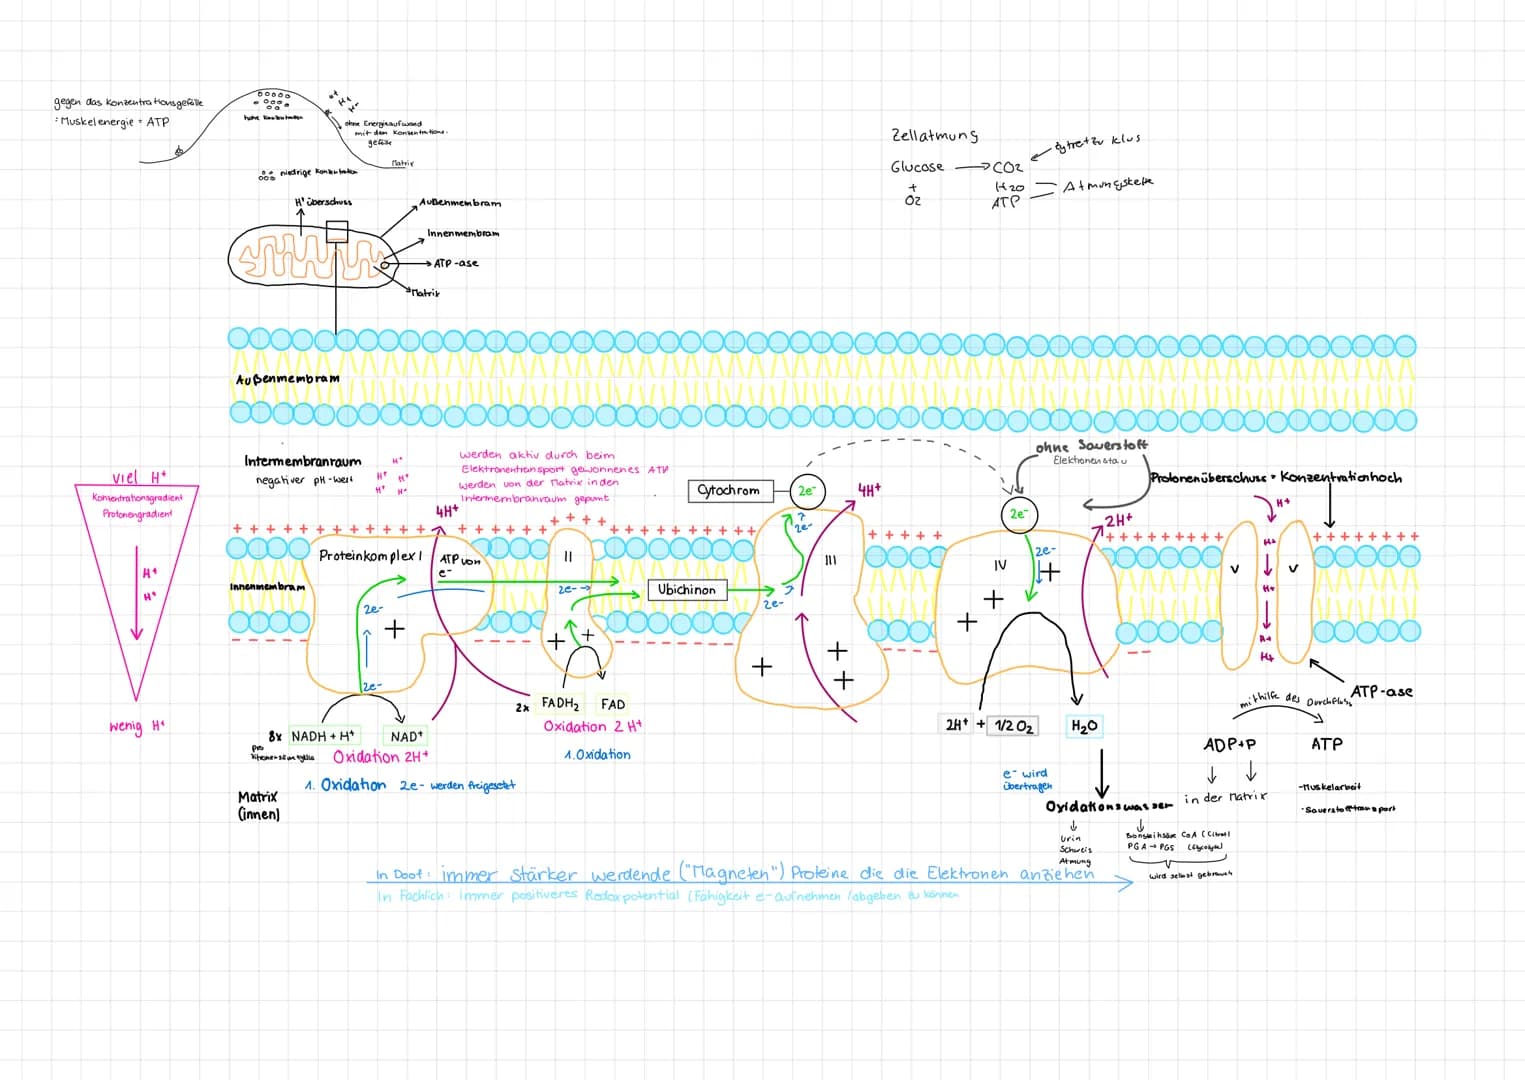 gegen das Konzentrationsgefälle
: Muskelenergie = ATP
hohe Konzentration
H⁺
H⁺
ohne Energieaufwand
mit dem Konzentrations-
gefälle
Matrix
niedrige Konzentration
Zellatmung
Glucose → CO2
+
O2
H2O
ATP
Atmungskette
H⁺ überschuss
Außenmembram
Innenmembram
ATP-ase
Matrix
Außenmembram
Intermembranraum
negativer pH-wert
H⁺
H⁺ H⁺
H⁺ H⁺
werden aktiv durch beim
Elektronentransport gewonnenes ATP
werden von der Matrix in den
Intermembranraum gepumt
viel H⁺
Konsentrationsgradient
Protonengradient
H⁺
H⁺
wenig H⁺
ohne Sauerstoff
Elektronenstau
Protonenüberschuss = Konzentration hoch
Cytochrom
2e-
4H⁺
4H⁺
2e-
2H⁺
H⁺
Proteinkomplex I
ATP von
e-
II
2e-
III
IV
2e-
V
V
H⁺
H⁺
H⁺
H⁺
Innenmembram
2e-
2e-
2e-
Ubichinon
2e-
ATP-ase
8x NADH + H⁺
NAD⁺
pro
Oxidation 2H⁺
1. Oxidation 2e- werden freigesetzt
2x FADH₂
FAD
Oxidation 2 H⁺
1. Oxidation
2H⁺ + 1/2 O₂
H₂O
e- wird
übertragen
Oxidationswasser
Urin
Schweis
Atmung
CoA (Citrat)
PGA → PGS (Glycolyse)
wird selbst gebraucht
mithilfe des Durchfluss
ADP+P
ATP
in der Matrix
-Muskelarbeit
-Sauerstofftransport
Matrix
(innen)
In Doof: immer stärker werdende ("Magneten") Proteine die die Elektronen anziehen
In Fachlich: Immer positiveres Redoxpotential (Fähigkeit e- aufnehmen /abgeben zu können